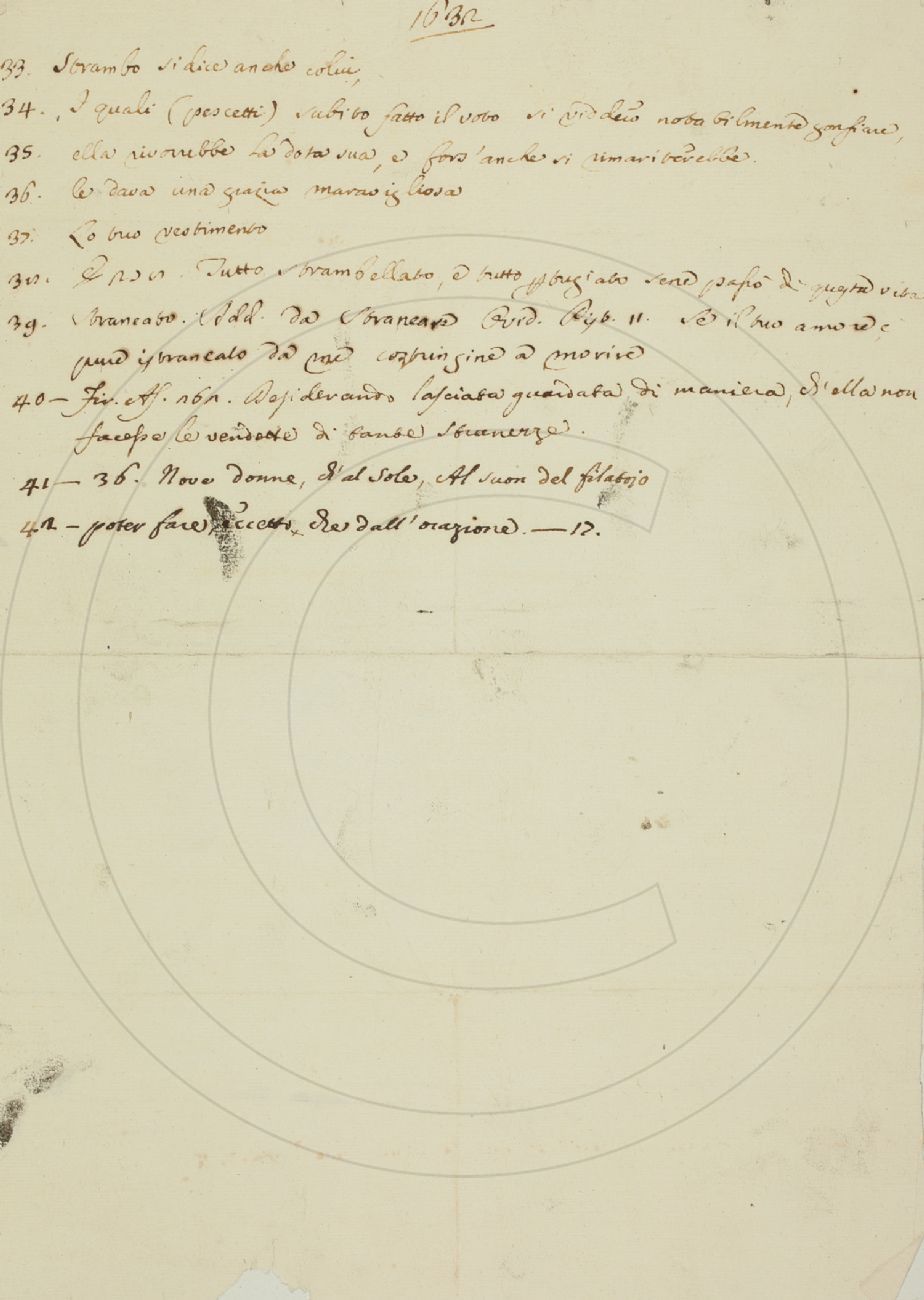 1632
33. Strambo si dice anche colui,
34. I quali (pescetti) subito fatto il voto si viddero notabilmente gonfiare,
35. ella riavrebbe la dota sua, e fors'anche si rimariterebbe.
36. le dava una grazia maravigliosa
37. Lo tuo vestimento
38. Tutto strambellato, e tutto sene passò di questa vita
39. Strancato. Add. da Strancare Ovid. Pist. 11. Se il tuo amore è
pure istrancato da me costringine a morire
40 — Fir. As. 161. Desiderando lasciata guardata di maniera, ch'ella non
facesse le vendette di tante stranezze.
41 — 36. Nove donne, ch'al Sole, Al suon del filatojo
42 – poter fare, eccetto, che dall'orazione. — 17.